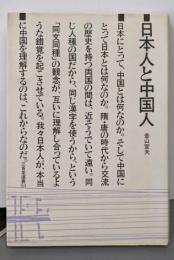 ■日本人と中国人
金山宣夫
■日本にとって、中国とは何なのか。そして中国に
とって日本とは何なのか。隋・唐の時代から交流
の歴史を持つ両国の間は、近そうでいて遠い。同
じ人種の国だから、同じ漢字を使うから、という
「同文同種」の観念が、互いに理解し合っているよ
うな錯覚を起こさせている。我々日本人が、本当
に中国を理解するのは、これからなのだ。